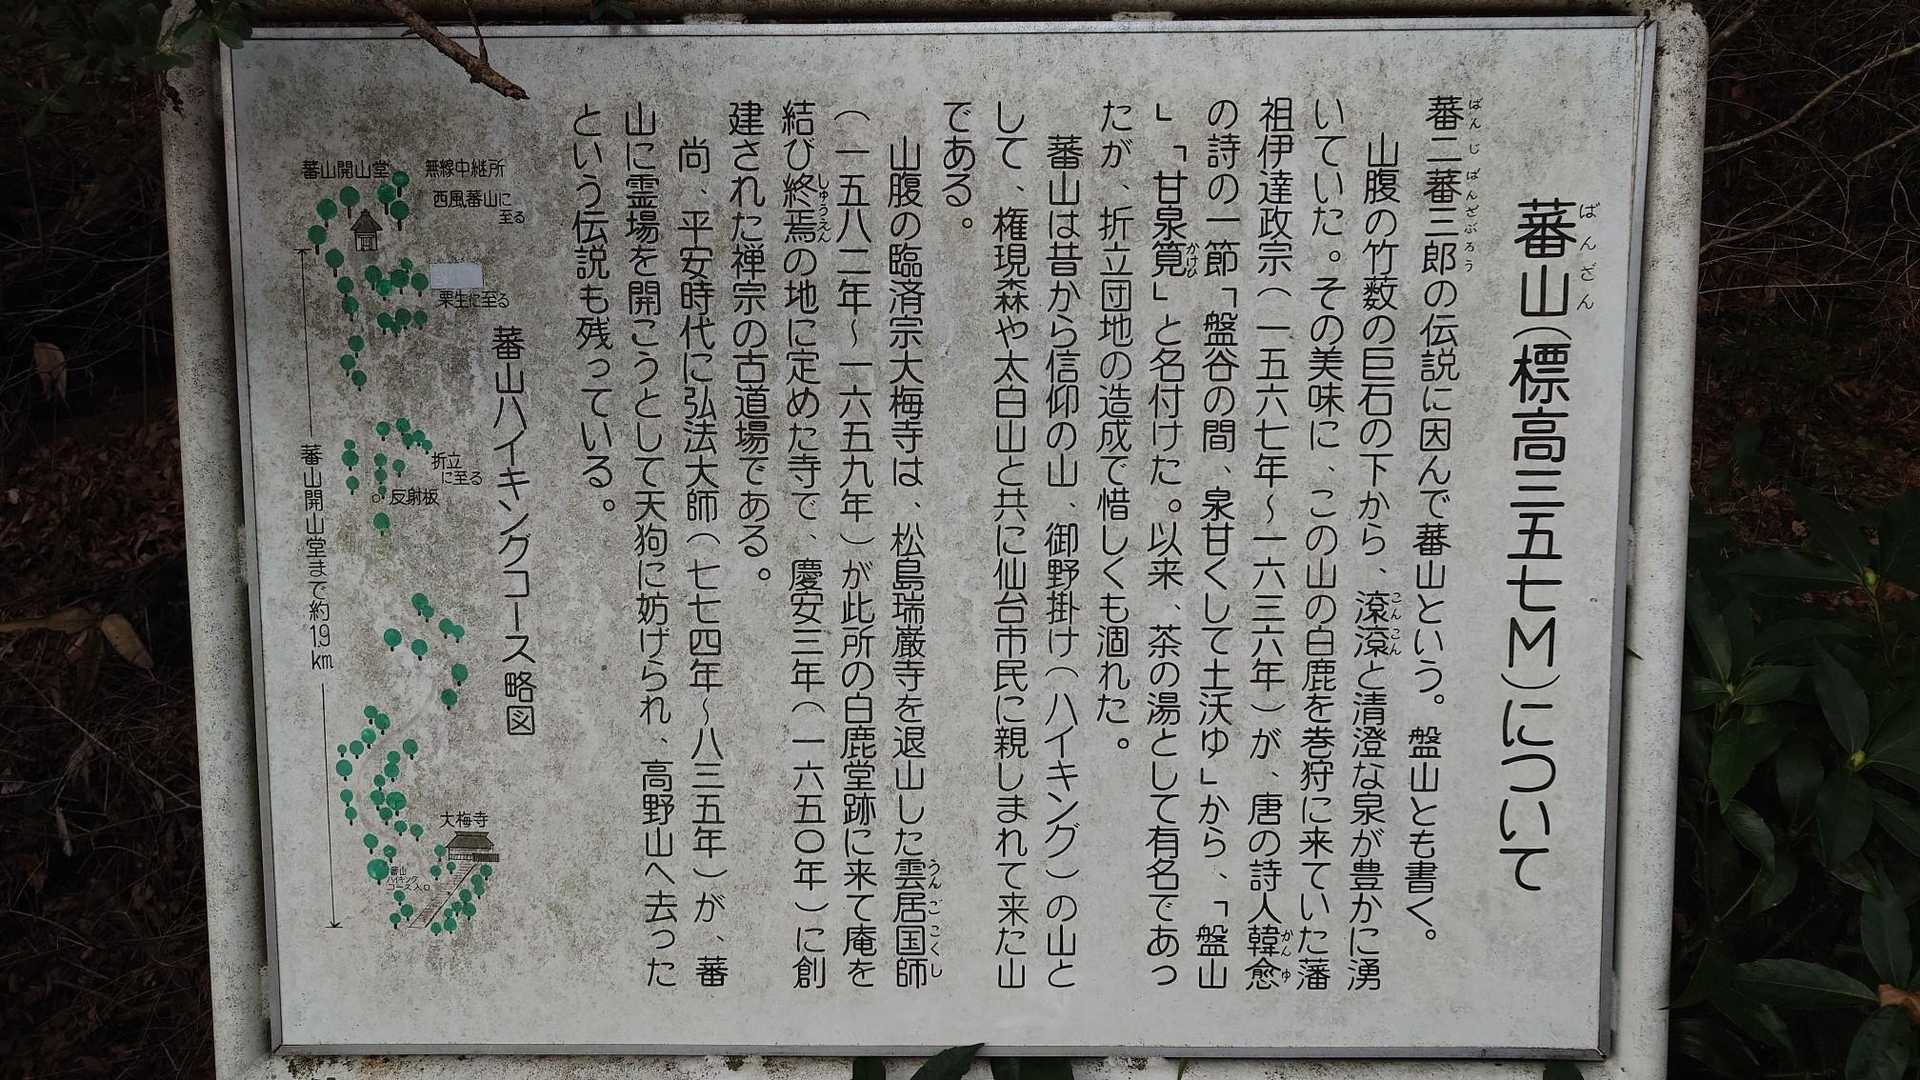 蕃山(標高三五七M)について
ばんざん
蕃二蕃三郎の伝説に因んで蕃山という。盤山とも書く。
ばんじ ばんざぶろう
山腹の竹薮の巨石の下から、滾滾と清澄な泉が豊かに湧
こんこん
いていた。その美味に、この山の白鹿を巻狩に来ていた藩
祖伊達政宗(一五六七年～一六三六年)が、唐の詩人韓愈
かんゆ
の詩の一節「盤谷の間、泉甘くして土沃ゆ」から、「盤山
」「甘泉筧」と名付けた。以来、茶の湯として有名であっ
かけひ
たが、折立団地の造成で惜しくも涸れた。
蕃山は昔から信仰の山、御野掛け(ハイキング)の山と
して、権現森や太白山と共に仙台市民に親しまれて来た山
である。
山腹の臨済宗大梅寺は、松島瑞巌寺を退山した雲居国師
うんごこくし
(一五八二年～一六五九年)が此所の白鹿堂跡に来て庵を
結び終焉の地に定めた寺で、慶安三年(一六五〇年)に創
しゅうえん
建された禅宗の古道場である。
尚、平安時代に弘法大師(七七四年～八三五年)が、蕃
山に霊場を開こうとして天狗に妨げられ、高野山へ去った
という伝説も残っている。
蕃山ハイキングコース略図
無線中継所
西風蕃山に
至る
蕃山開山堂
栗生に至る
折立
に至る
反射板
蕃山開山堂まで約1.9km
大梅寺
蕃山
ハイキング
コース入口